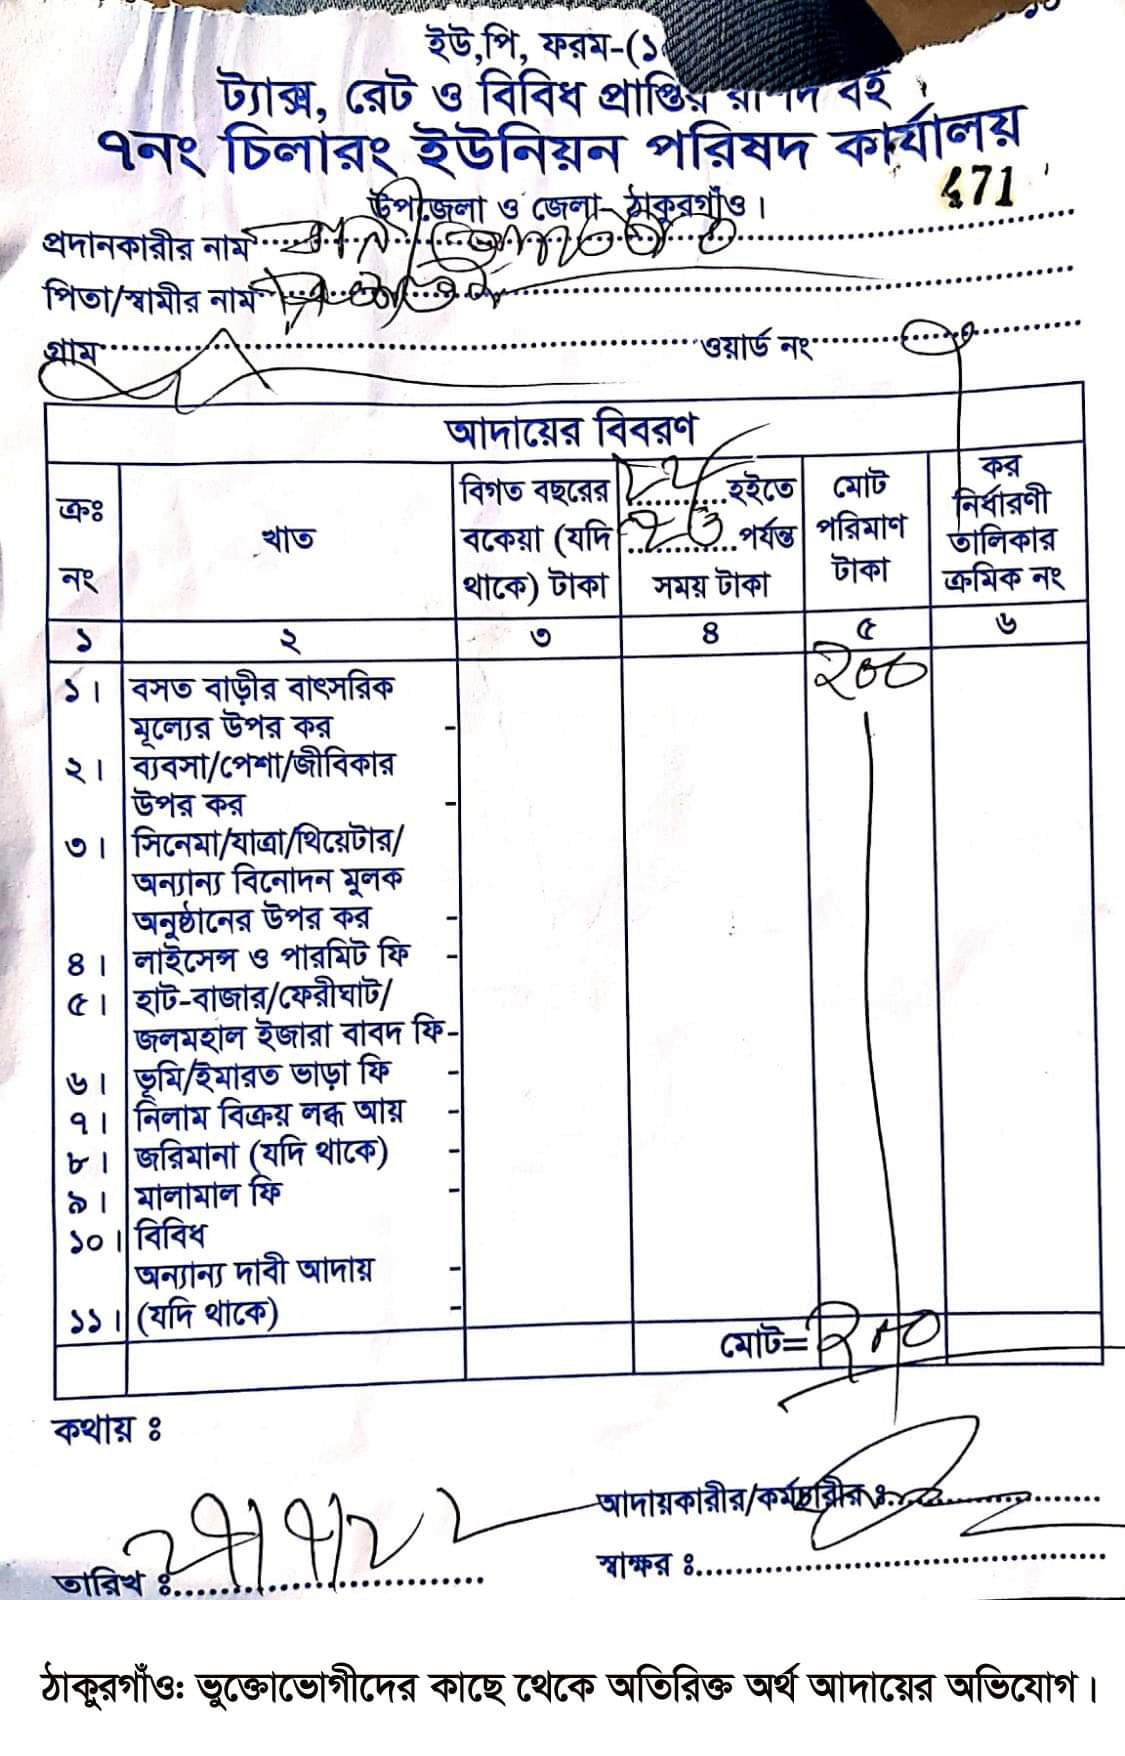 ইউ,পি, ফরম-(১
ট্যাক্স, রেট ও বিবিধ প্রাপ্তির রশিদ বই
৭নং চিলারং ইউনিয়ন পরিষদ কার্যালয়
উপজেলা ও জেলা- ঠাকুরগাঁও।
671
প্রদানকারীর নাম
পিতা/স্বামীর নাম
গ্রাম ওয়ার্ড নং
আদায়ের বিবরণ
ক্রঃ নং
খাত
বিগত বছরের বকেয়া (যদি থাকে) টাকা
হইতে ২৩ পর্যন্ত সময় টাকা
মোট পরিমাণ টাকা
কর নির্ধারণী তালিকার ক্রমিক নং
১ ২ ৩ ৪ ৫ ৬
১। বসত বাড়ীর বাৎসরিক ২০০
মূল্যের উপর কর -
২। ব্যবসা/পেশা/জীবিকার
উপর কর -
৩। সিনেমা/যাত্রা/থিয়েটার/
অন্যান্য বিনোদন মূলক
অনুষ্ঠানের উপর কর -
৪। লাইসেন্স ও পারমিট ফি -
৫। হাট-বাজার/ফেরীঘাট/
জলমহাল ইজারা বাবদ ফি-
৬। ভূমি/ইমারত ভাড়া ফি -
৭। নিলাম বিক্রয় লব্ধ আয় -
৮। জরিমানা (যদি থাকে) -
৯। মালামাল ফি -
১০। বিবিধ
অন্যান্য দাবী আদায় -
১১। (যদি থাকে) -
মোট= ২০০
কথায় ঃ
আদায়কারীর/কর্মচারীর ঃ
তারিখ ঃ
স্বাক্ষর ঃ
ঠাকুরগাঁও: ভুক্তোভোগীদের কাছে থেকে অতিরিক্ত অর্থ আদায়ের অভিযোগ।